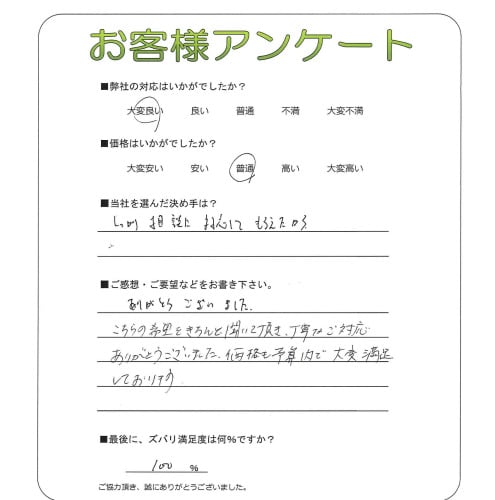 お客様アンケート
■弊社の対応はいかがでしたか？
大変良い 良い 普通 不満 大変不満
■価格はいかがでしたか？
大変安い 安い 普通 高い 大変高い
■当社を選んだ決め手は？
相談に対応して もらえたから
■ご感想・ご要望などをお書き下さい。
ありがとう ございました。
こちらの希望をきちんと聞いて頂き、丁寧なご対応
ありがとうございました。価格も予算内で大変満足
しております
■最後に、ズバリ満足度は何%ですか？
100 %
ご協力頂き、誠にありがとうございました。